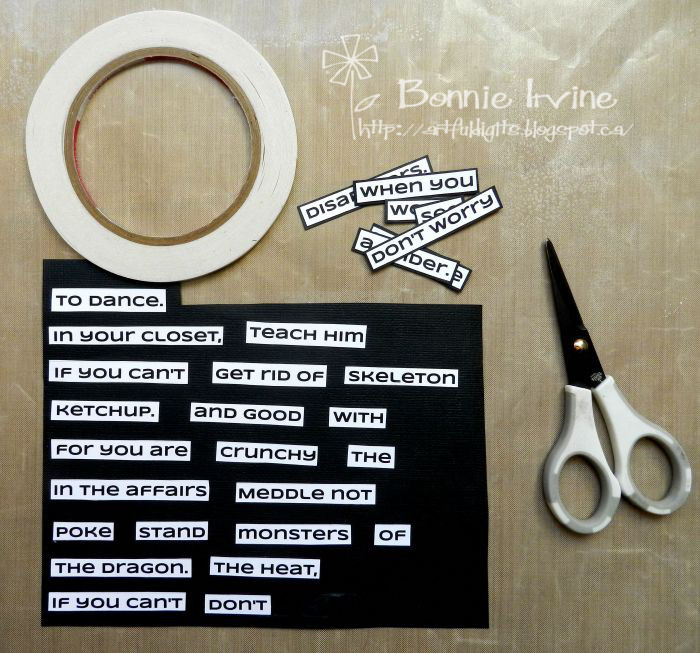 Bonnie Irvine
http://artfuldigits.blogspot.ca/
WHEN YOU
DON'T WORRY
TO DANCE.
IN YOUR CLOSET, TEACH HIM
IF YOU CAN'T GET RID OF SKELETON
KETCHUP. AND GOOD WITH
FOR YOU ARE CRUNCHY THE
IN THE AFFAIRS MEDDLE NOT
POKE STAND MONSTERS OF
THE DRAGON. THE HEAT,
IF YOU CAN'T DON'T